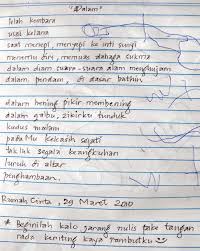 "Dalam"
lelah kembara
usai kelana
saat menepi, menyepi ke inti sunyi
menemu diri, memuas dahaga sukma
dalam diam suara-suara alam menghujam
dalam pendam, di dasar bathin
dalam hening pikir membening
dalam qalbu, zikirku tunduk
kudus malam
padaMu Kekasih sejati
takluk segala keangkuhan
luruh di altar
penghambaan.
Rumah Cinta, 29 Maret 2010
* Beginilah kalo jarang nulis pake tangan
rada keriting kaya rambutku